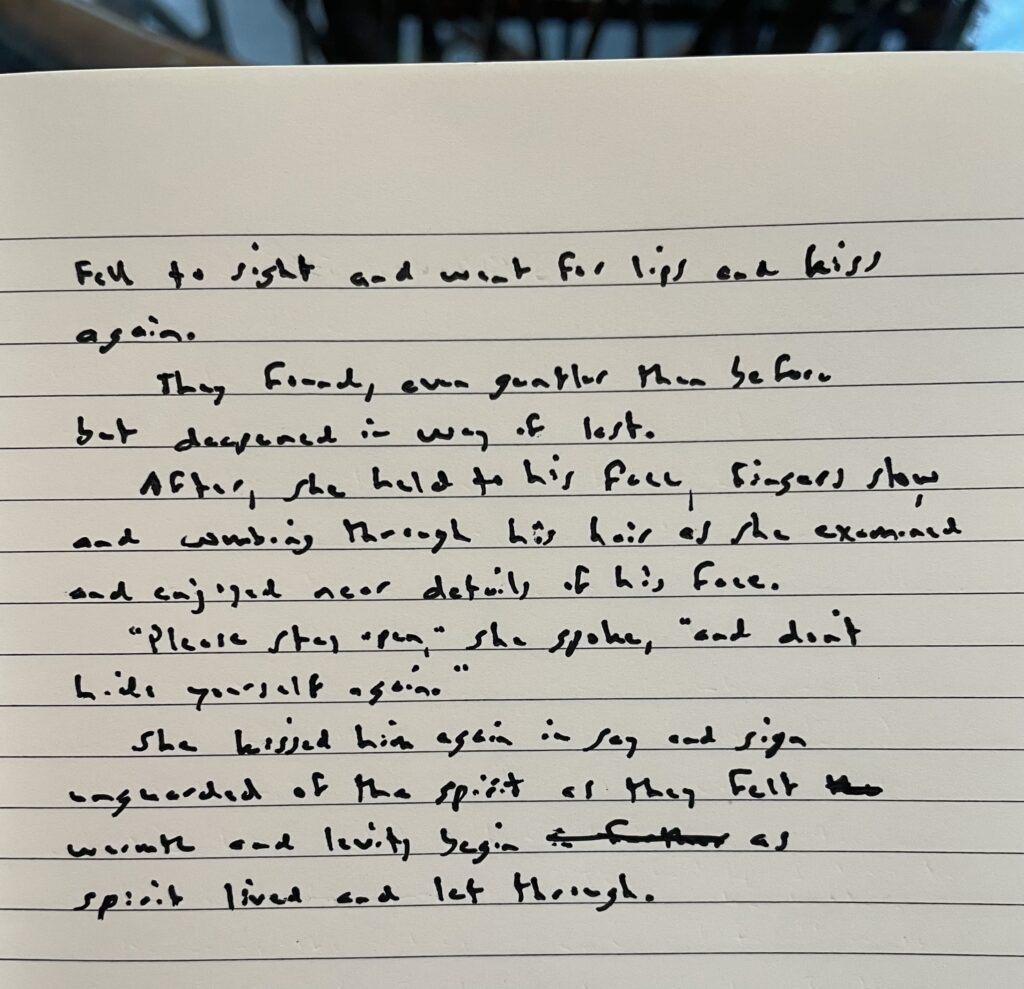 Fell to sight and went for lips and kiss
again.
They found, even gentler than before
but deepened in way of last.
After, she held to his face, fingers slow
and combing through his hair as she examined
and enjoyed near details of his face.
"Please stay open," she spoke, "and don't
hide yourself again."
She kissed him again in say and sign
unguarded of the spirit as they felt
warmth and levity begin as
spirit lived and let through.